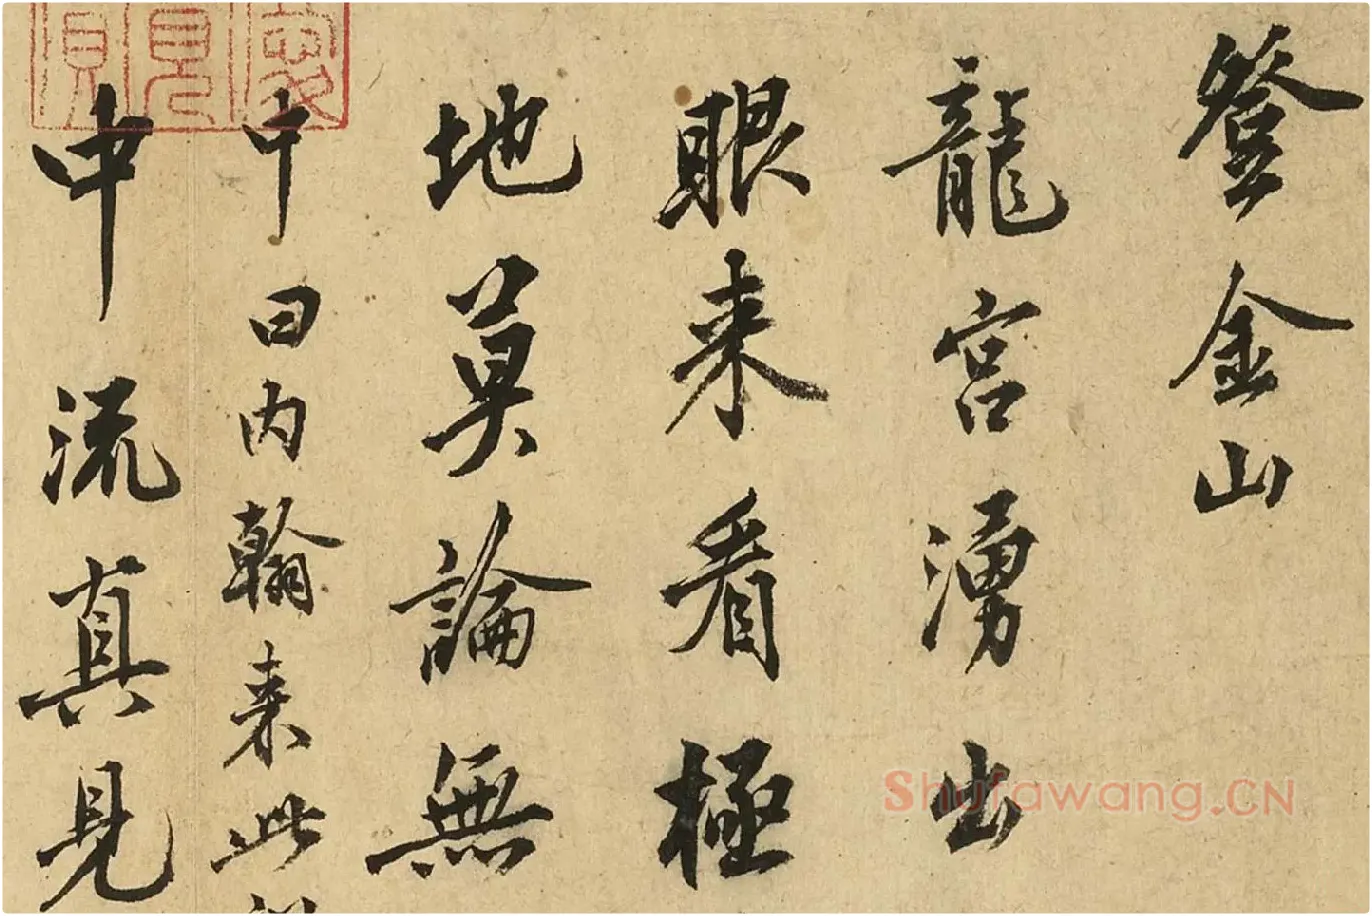 登金山
龍宮湧出
眼来看極
地莫論無
中曰内翰来此
中流真見
Shufawang.CN